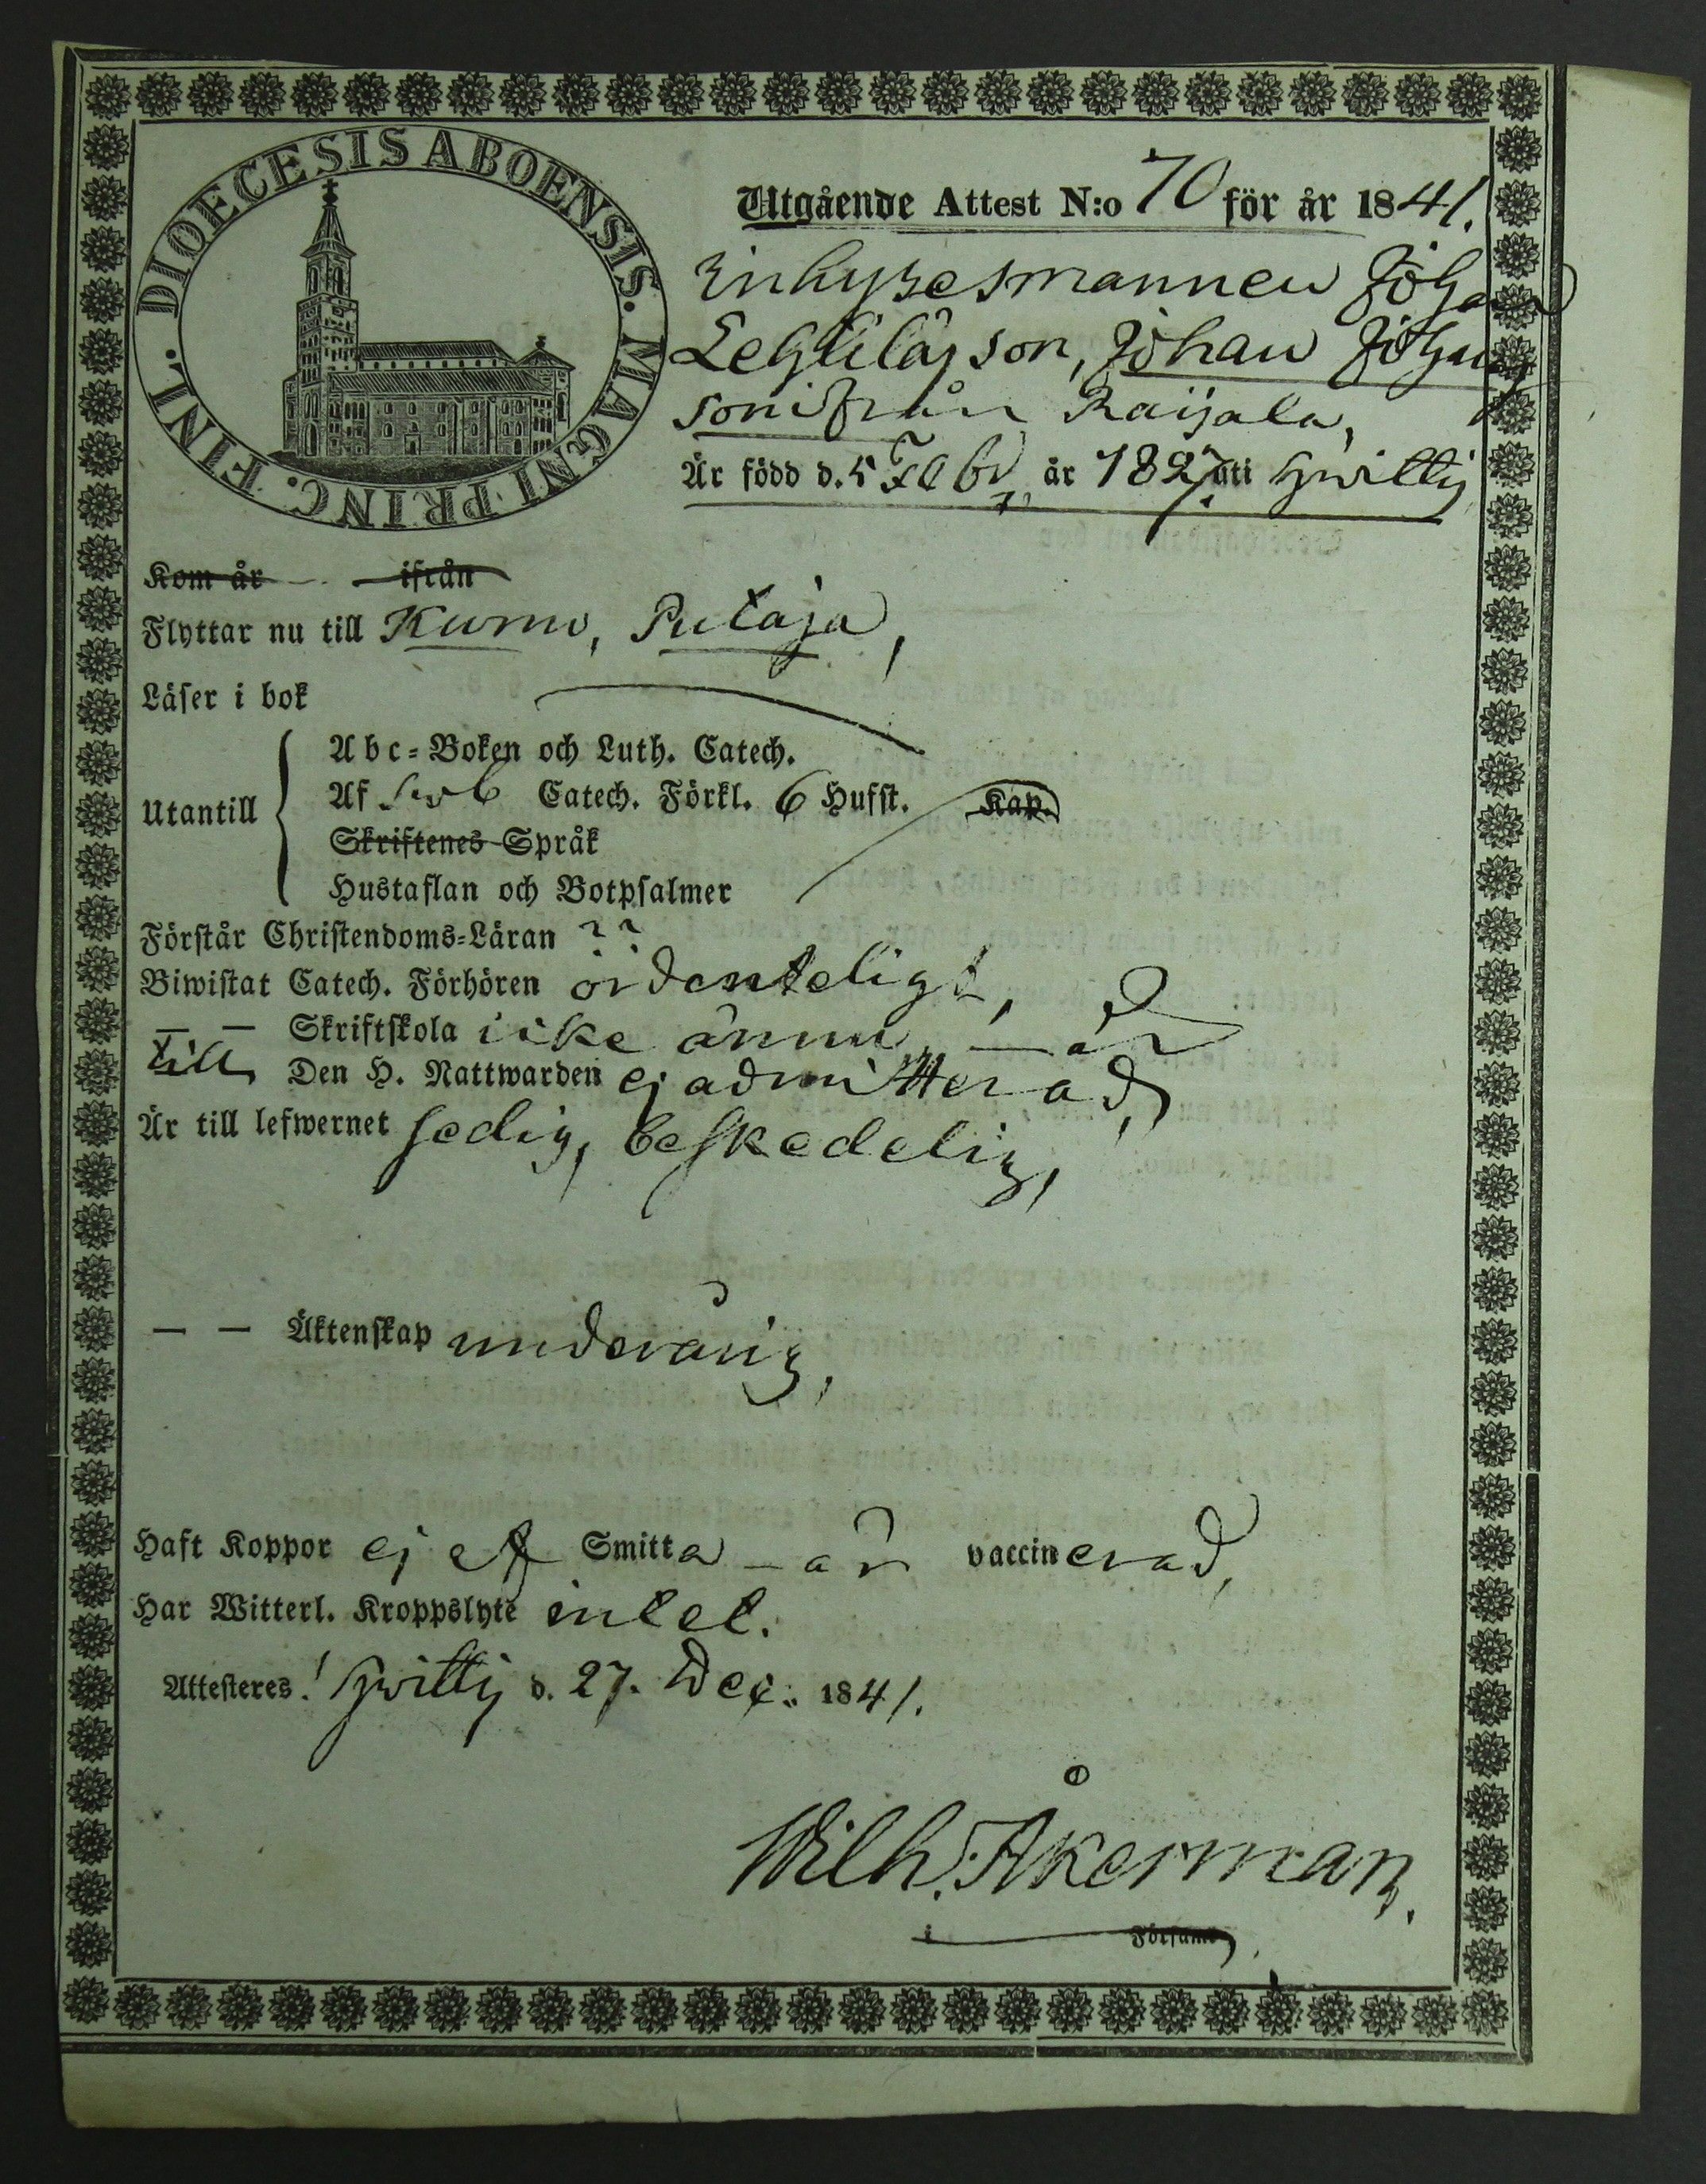 DIOECESIS ABOENSIS. MAGNI PRINC. FINL.
Utgående Attest N:o 70 för år 1841.
Inhysesmannen Johan
son, Johan Johans
son ifrån Raijala,
Är född d. 5 Febr år 1827 uti Hvittis
Kom år ifrån
Flyttar nu till Kumo, Putaja,
Läser i bok
Utantill
Abc-Boken och Luth. Catech.
Af Catech. Förkl. 6 Hufst. Kap.
Skriftenes Språk
Hustaflan och Botpsalmer
Förstår Christendoms-Läran
Biwistat Catech. Förhören ordenteligt,
— — Skriftskola icke ännu, — är
till Den H. Nattwarden ej admitterad,
Är till lefwernet sedig, beskedelig,
— — Äktenskap underårig,
Haft Koppor ej ef Smitta – är vaccinerad,
Har Witterl. Kroppslyte intet.
Attesteres! Hvittis d. 27. Dec: 1841.
Wilh. Åkerman.
i Församl.